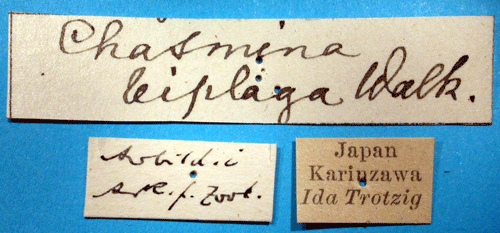 Chasmina
biplaga Walk.
Avbild. i
Ark. f. Zool.
Japan
Karinzawa
Ida Trotzig